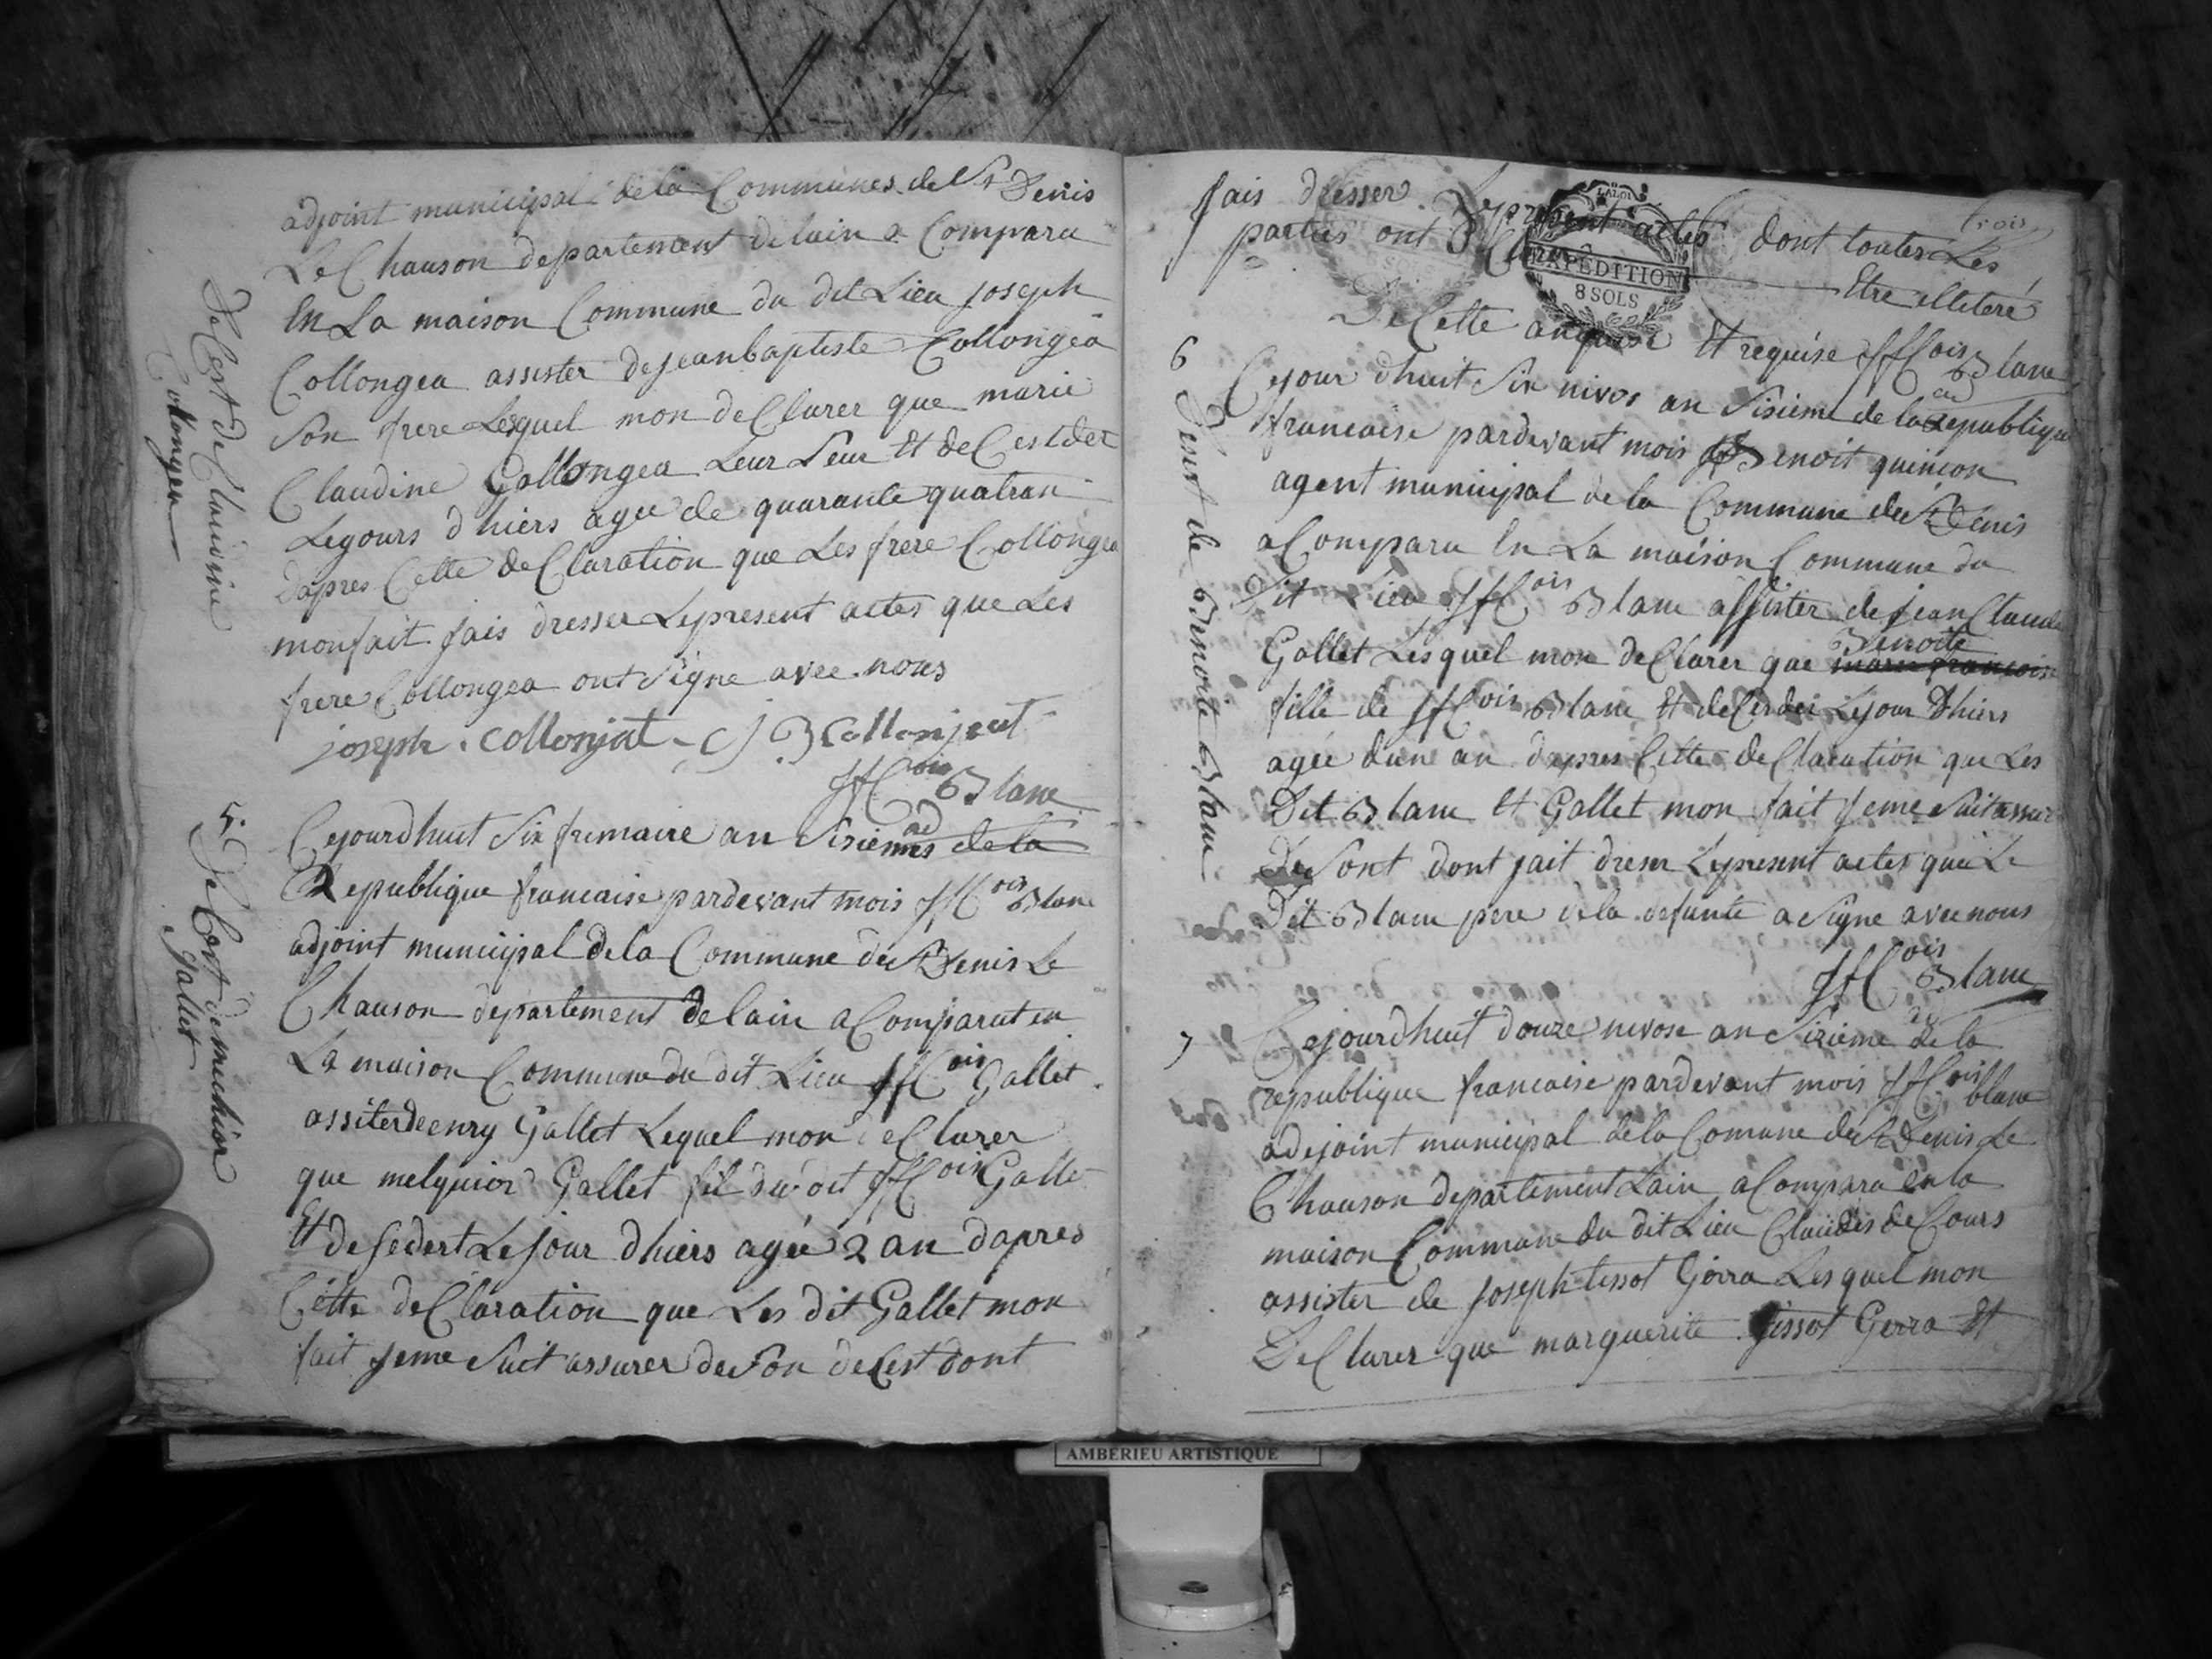 adjoint municipal dela Communes de St Denis
Le Chauson departement delain a Comparu
En La maison Commune du dit Lieu joseph
Collongea assister de jeanbaptiste Collongea
Son frere Lesquel mon deClarer que marie
Claudine Collongea Leur Seur Et deCestder
Lejours dhiers agee de quarante quatran
dapres Cette deClaration que Les frere Collongea
monfait jais dresser Lepresent actes que Les
frere Collongea ont Signe avec nous
joseph Collonjat J B Collonjeat
Blanc
DeCest de Claudine
Collongea
5.
DeCest de melchior
gallet
Cejourdhuit Six frimaire an Sisiemes de la
Republique francaise pardevant mois ffCois Blanc
adjoint municipal dela Commune de St Denis Le
Chauson departement delain a Comparut en
La maison Commune du dit Lieu ffCois Gallet
assiterdeenry Gallet Lequel mon deClarer
que melquior Gallet fil du dit ffCois Galle
Et desedert Lejour dhiers agée 2 an dapres
Cette deClaration que Les dit Gallet mon
fait jeme Suit assurer deson deCest dont
trois
jais dresser Lepresent actes dont toutes Les
parties ont declare Etre elletere
LA LOI
EXPÉDITION
8 SOLS
De Cette Et requise ffCois Blanc
6
Desest de Benoite Blanc
Cejour dhuit Six nivos an Sisieme de la Republique
francaise pardevant mois Benoit quinson
agent municipal de la Commune de St Denis
a Comparu En La maison Commune du
Dit Lieu ffCois Blanc assister de jean Claude
Gallet Lesquel mon deClarer que Benoite
fille de ffCois Blanc Et deCesdei Lejour Dhiers
agée dun an dapres Cette deClaration que Les
Dit Blanc Et Gallet mon fait jeme Suitassurer
De Sont dont jait dreser Lepresent actes que Le
Dit Blanc pere dela defunte a Signe avec nous
ffCois Blanc
7
Cejourdhuit douze nivose an Sisieme de la
republique francaise pardevant mois ffCois blanc
adejoint municipal dela Comune de St Denis Le
Chauson departement Lain a Comparu En la
maison Commune du dit Lieu Claudes deCours
assister de joseph tissot Gorra Lesquel mon
DeClarer que marguerite tissot Gerra Et
AMBERIEU ARTISTIQUE